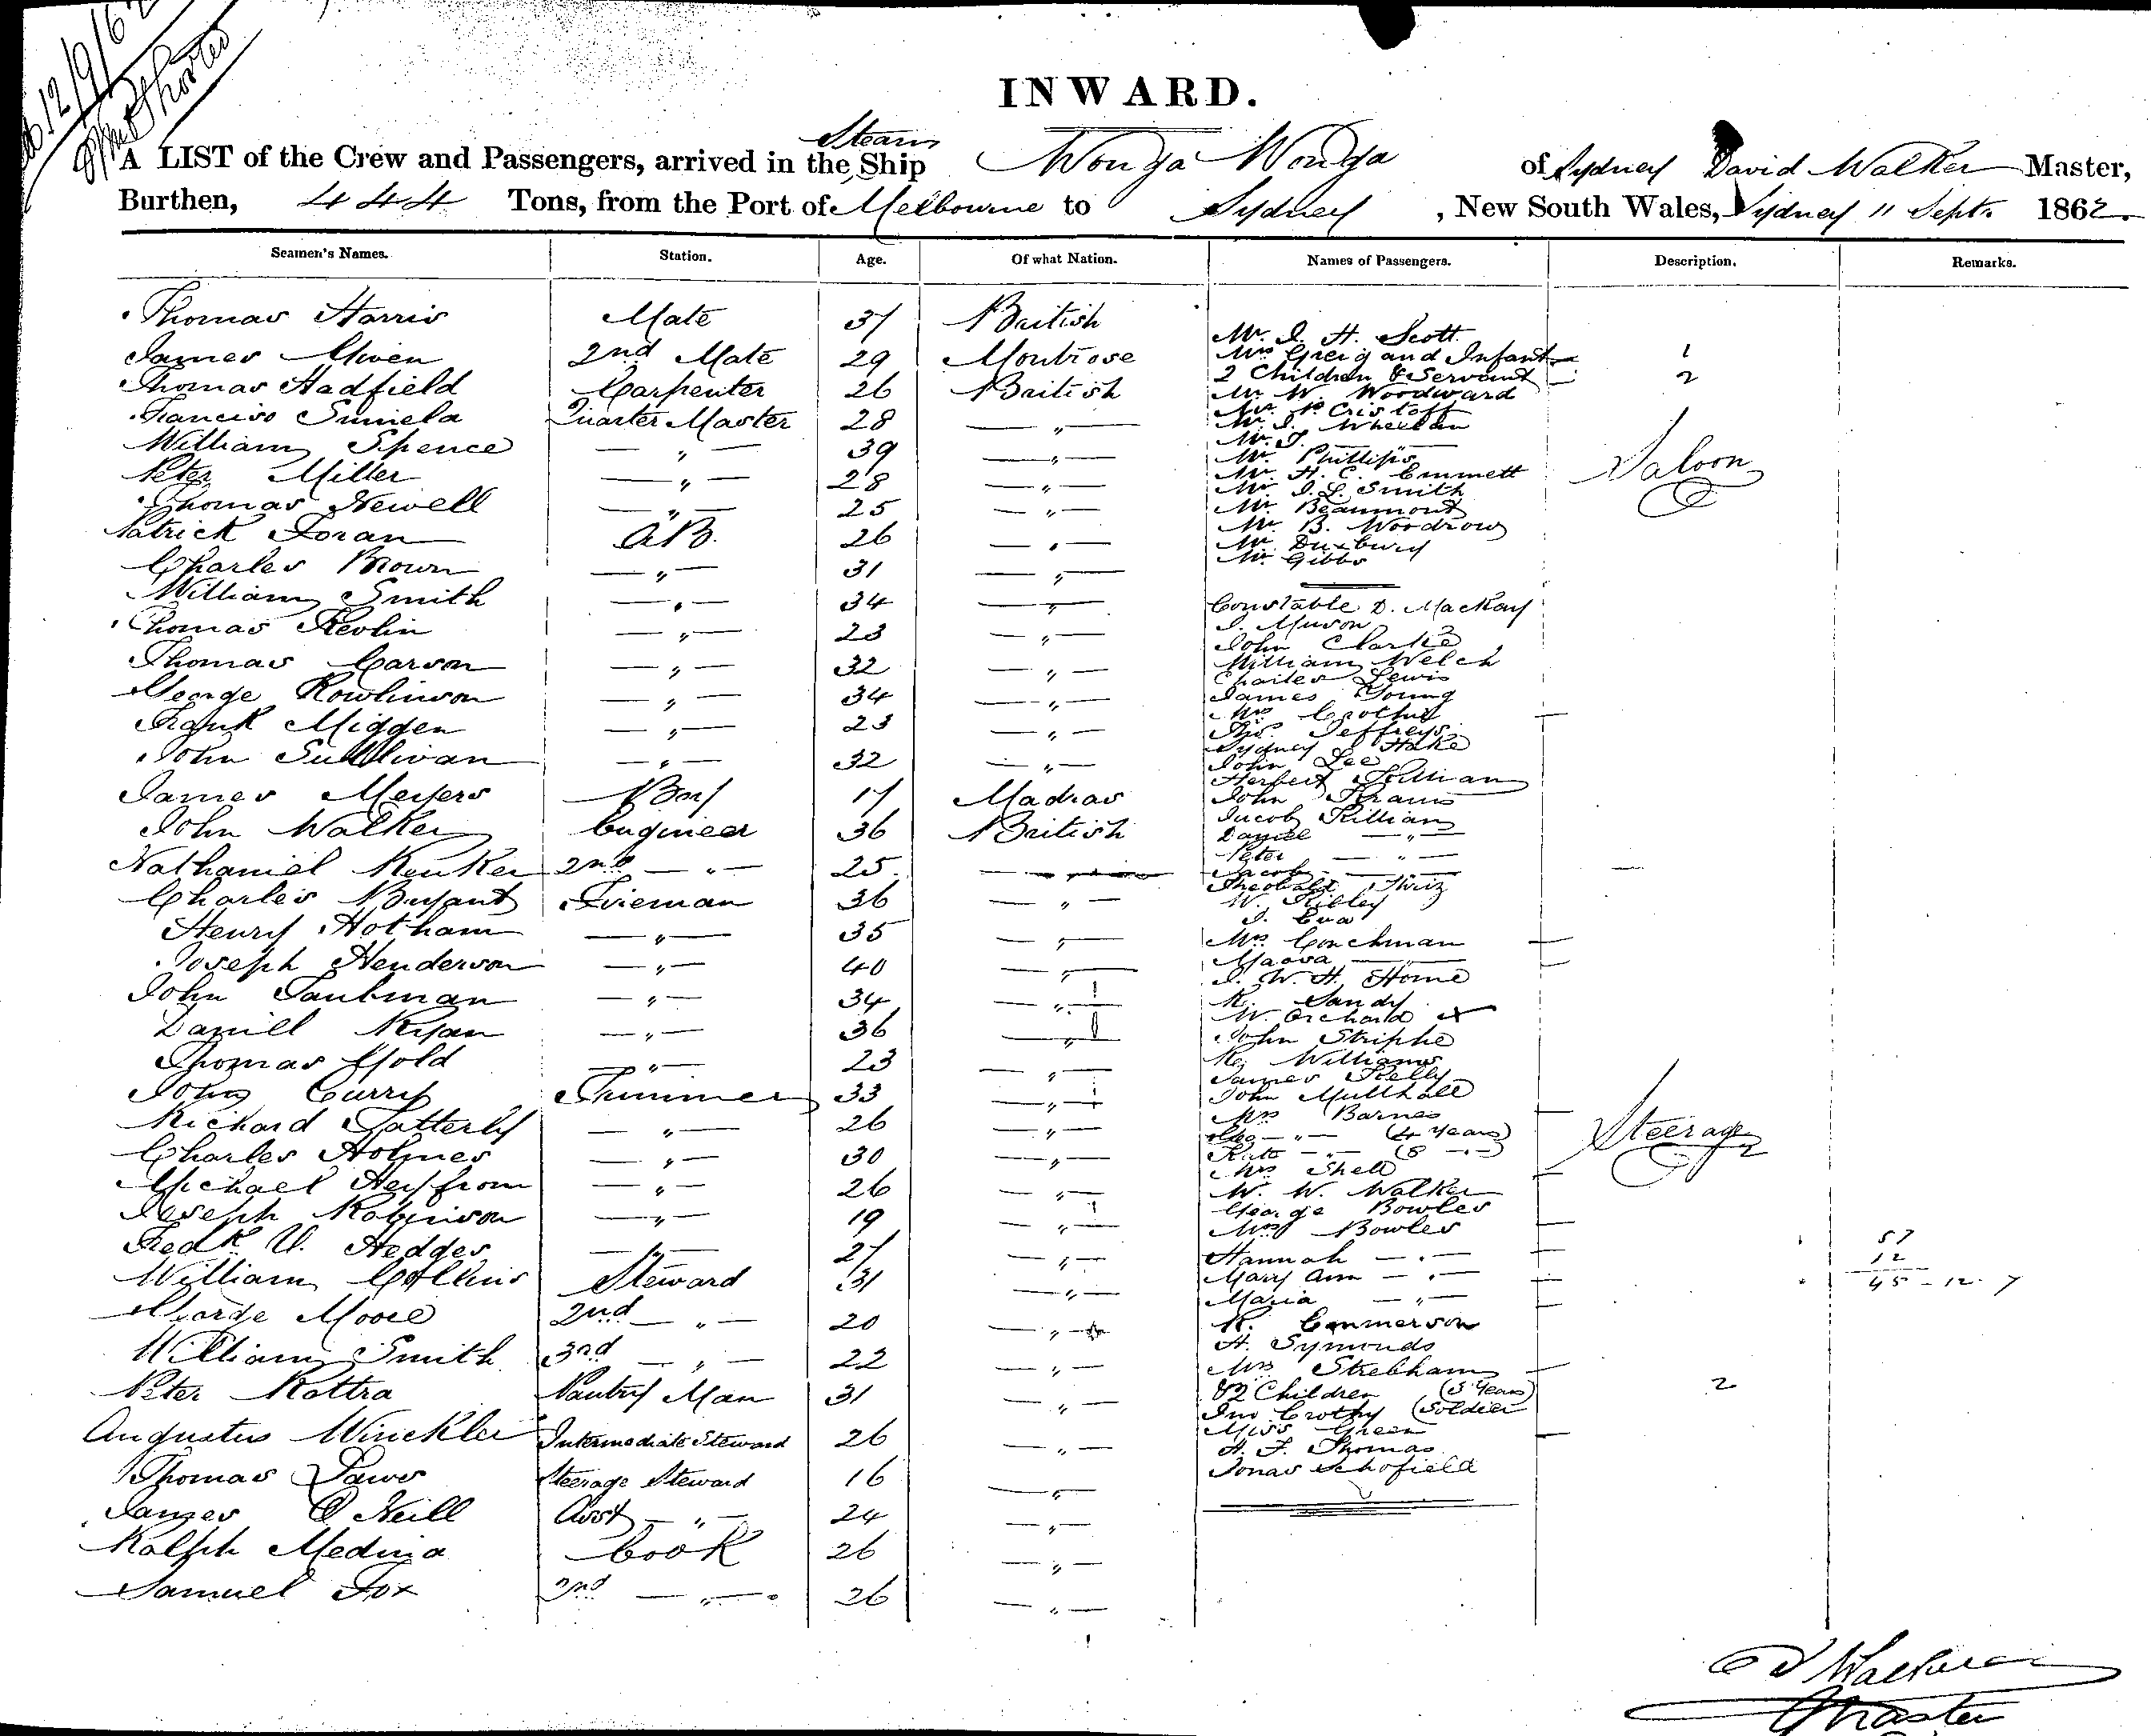 12/9/62
INWARD.
A LIST of the Crew and Passengers, arrived in the Steam Ship Wonga Wonga of Sydney David Walker Master,
Burthen, 444 Tons, from the Port of Melbourne to Sydney, New South Wales, Sydney 11 Sept. 1862.
Seamen's Names. Station. Age. Of what Nation. Names of Passengers. Description. Remarks.
Thomas Harris Mate 37 British
James 2nd Mate 29 Montrose
Thomas Hadfield Carpenter 26 British
Quarter Master 28 — " —
William Spence — " — 39 — " —
Peter Miller — " — 28 — " —
Thomas Newell — " — 25 — " —
Patrick Foran A B. 26 — " —
Charles Brown — " — 31 — " —
William Smith — " — 34 — " —
Thomas — " — 23 — " —
Thomas Carson — " — 32 — " —
George Rowlinson — " — 34 — " —
Frank Miggen — " — 23 — " —
John Sullivan — " — 32 — " —
James Meyers Boy 17 Madras
John Walker Engineer 36 British
Nathaniel 2nd — " — 25
Charles Bryant Fireman 36 — " —
Henry Hotham — " — 35 — " —
Joseph Henderson — " — 40 — " —
John Taubman — " — 34 — " —
Daniell Ryan — " — 36 — " —
Thomas Gold — " — 23 — " —
John Curry Trimmer 33 — " —
Richard Tatterly — " — 26 — " —
Charles Holmes — " — 30 — " —
Michael — " — 26 — " —
Joseph Robinson — " — 19 — " —
Fredk. Hedges — " — 27 — " —
William Collins Steward 31 — " —
George Moore 2nd — " — 20 — " —
William Smith 3rd — " — 22 — " —
Peter Rottra Pantry Man 31 — " —
Augustus Winckler Intermediate Steward 26 — " —
Thomas Steerage Steward 16 — " —
James O Neill Asst — " — 24 — " —
Ralph Medina Cook 26 — " —
Samuel Fox 2nd — " — 26 — " —
Mr. J. H. Scott
Mrs Greig and Infant 1
2 Children & Servant 2
Mr W. Woodward
Mr. Cristoff
Mr. J. Wheelan
Mr. J.
Mr. Phillips
Mr. H. C. Emmett
Mr J. L. Smith
Mr Beaumont
Mr. B. Woodrow
Mr. Duxbury
Mr. Gibbs
Saloon
Constable D. Mackay
J. Muson
John Clarke
William Welch
Charles Lewis
James Young
Mrs Crothy
Thos. Jeffreys
Sydney Hake
John Lee
Herbert
John
Jacob Killian
Daniel — " —
Peter — " —
Jacob — " —
Theobald
W. Kibley
J.
Mrs Conchman
J. W. H. Horne
R. Sandy
W. Orchard x
John Striphe
R. Williams
James Kelly
John Mulhall
Mrs Barnes
— " — (4 Years)
Kate — " — (8 — " —)
Mrs Shell
W. W. Walker
George Bowles
Mrs Bowles
Hannah — " —
Mary Ann — " —
Maria — " —
R. Emmerson
H. Symonds
Mrs Strebham
& 2 Children (3 Years) 2
Jno. Crothy (Soldier
Miss Green
H. J. Thomas
Jonas Schofield
Steerage
57
12
45 - 12 - 7
D Walker
Master